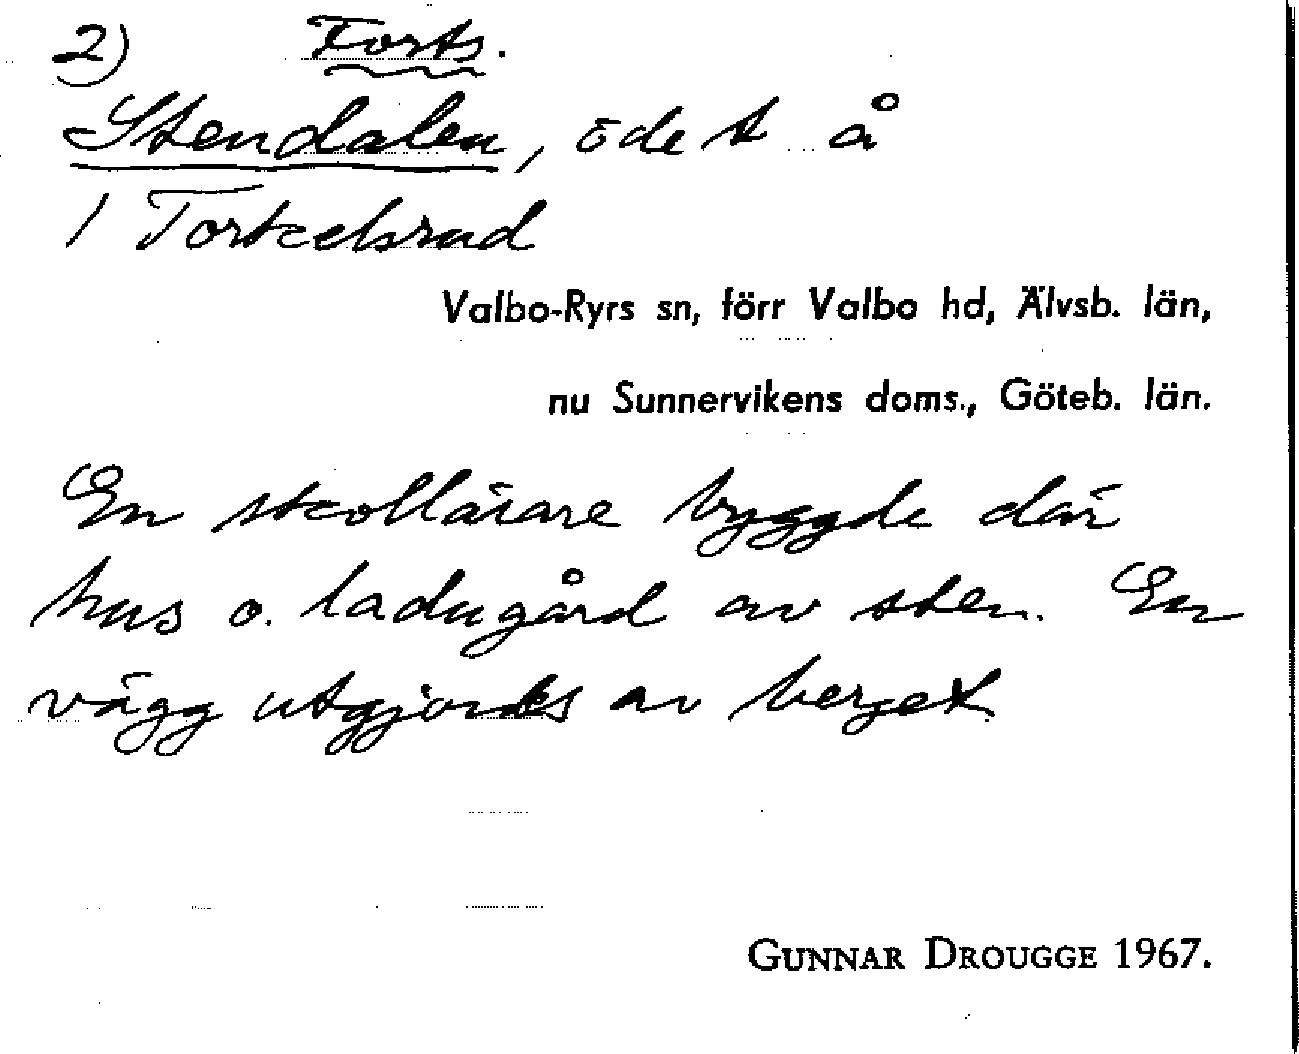 2) Forts.
Stendalen, öde t å
1 Torkelsrud
Valbo-Ryrs sn, förr Valbo hd, Älvsb. län,
nu Sunnervikens doms., Göteb. län.
En skollärare byggde där
hus o. ladugård av sten. En
vägg utgjordes av berget
GUNNAR DROUGGE 1967.